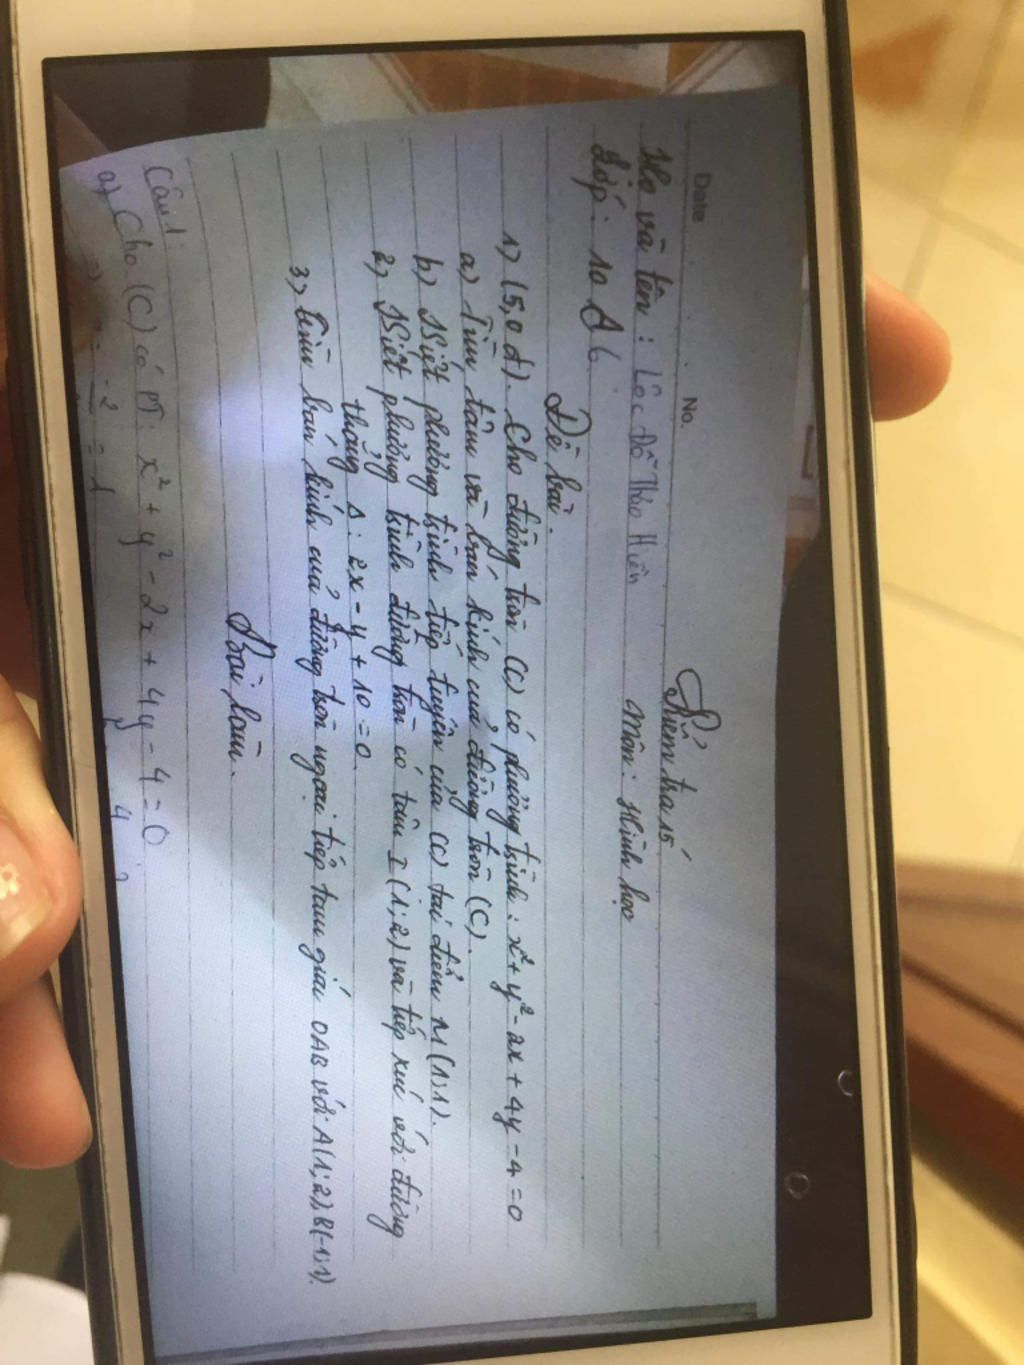 Date No.
Kiểm tra 15'
Họ và tên: Lộc Đỗ Thảo Hiền Môn: Hình học
Lớp: 10 A6
Đề bài.
1) (5,0 đ). Cho đường tròn (C) có phương trình: x² + y² - 2x + 4y - 4 = 0
a) Tìm tâm và bán kính của đường tròn (C).
b) Viết phương trình tiếp tuyến của (C) tại điểm M (1;1).
2) Viết phương trình đường tròn có tâm I (1;2) và tiếp xúc với đường
thẳng Δ: 2x - y + 10 = 0
3) Tìm bán kính của đường tròn ngoại tiếp tam giác OAB với: A(1;2), B(-1;1).
Bài làm.
Câu 1:
a) Cho (C) có PT: x² + y² - 2x + 4y - 4 = 0
-2 = 1 4